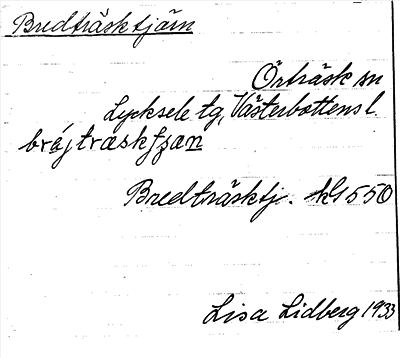 Bredträsktjärn
Örträsk sn
Lycksele tg, Västerbottens l.
Bredträsktj. 1550
Lisa Lidberg 1933